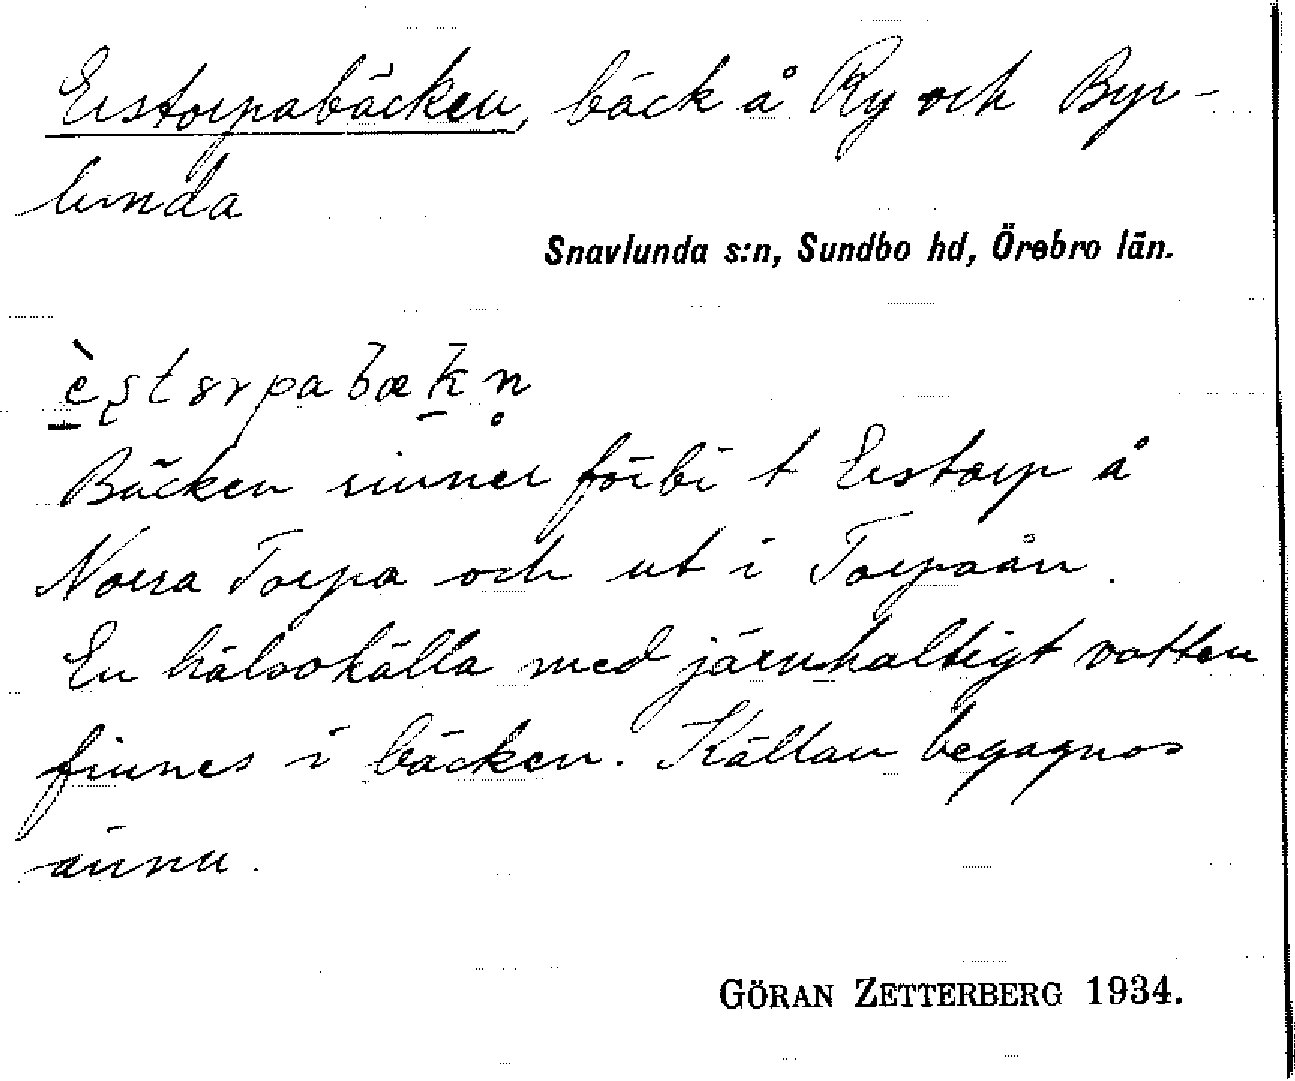 Erstorpabäcken, bäck å Ry och Byr-
lunda
Snavlunda s:n, Sundbo hd, Örebro län.
Bäcken rinner förbi t Erstorp å
Norra Torpa och ut i Torpaån.
En hälsokälla med järnhaltigt vatten
finnes i bäcken. Källan begagnas
ännu.
GÖRAN ZETTERBERG 1934.